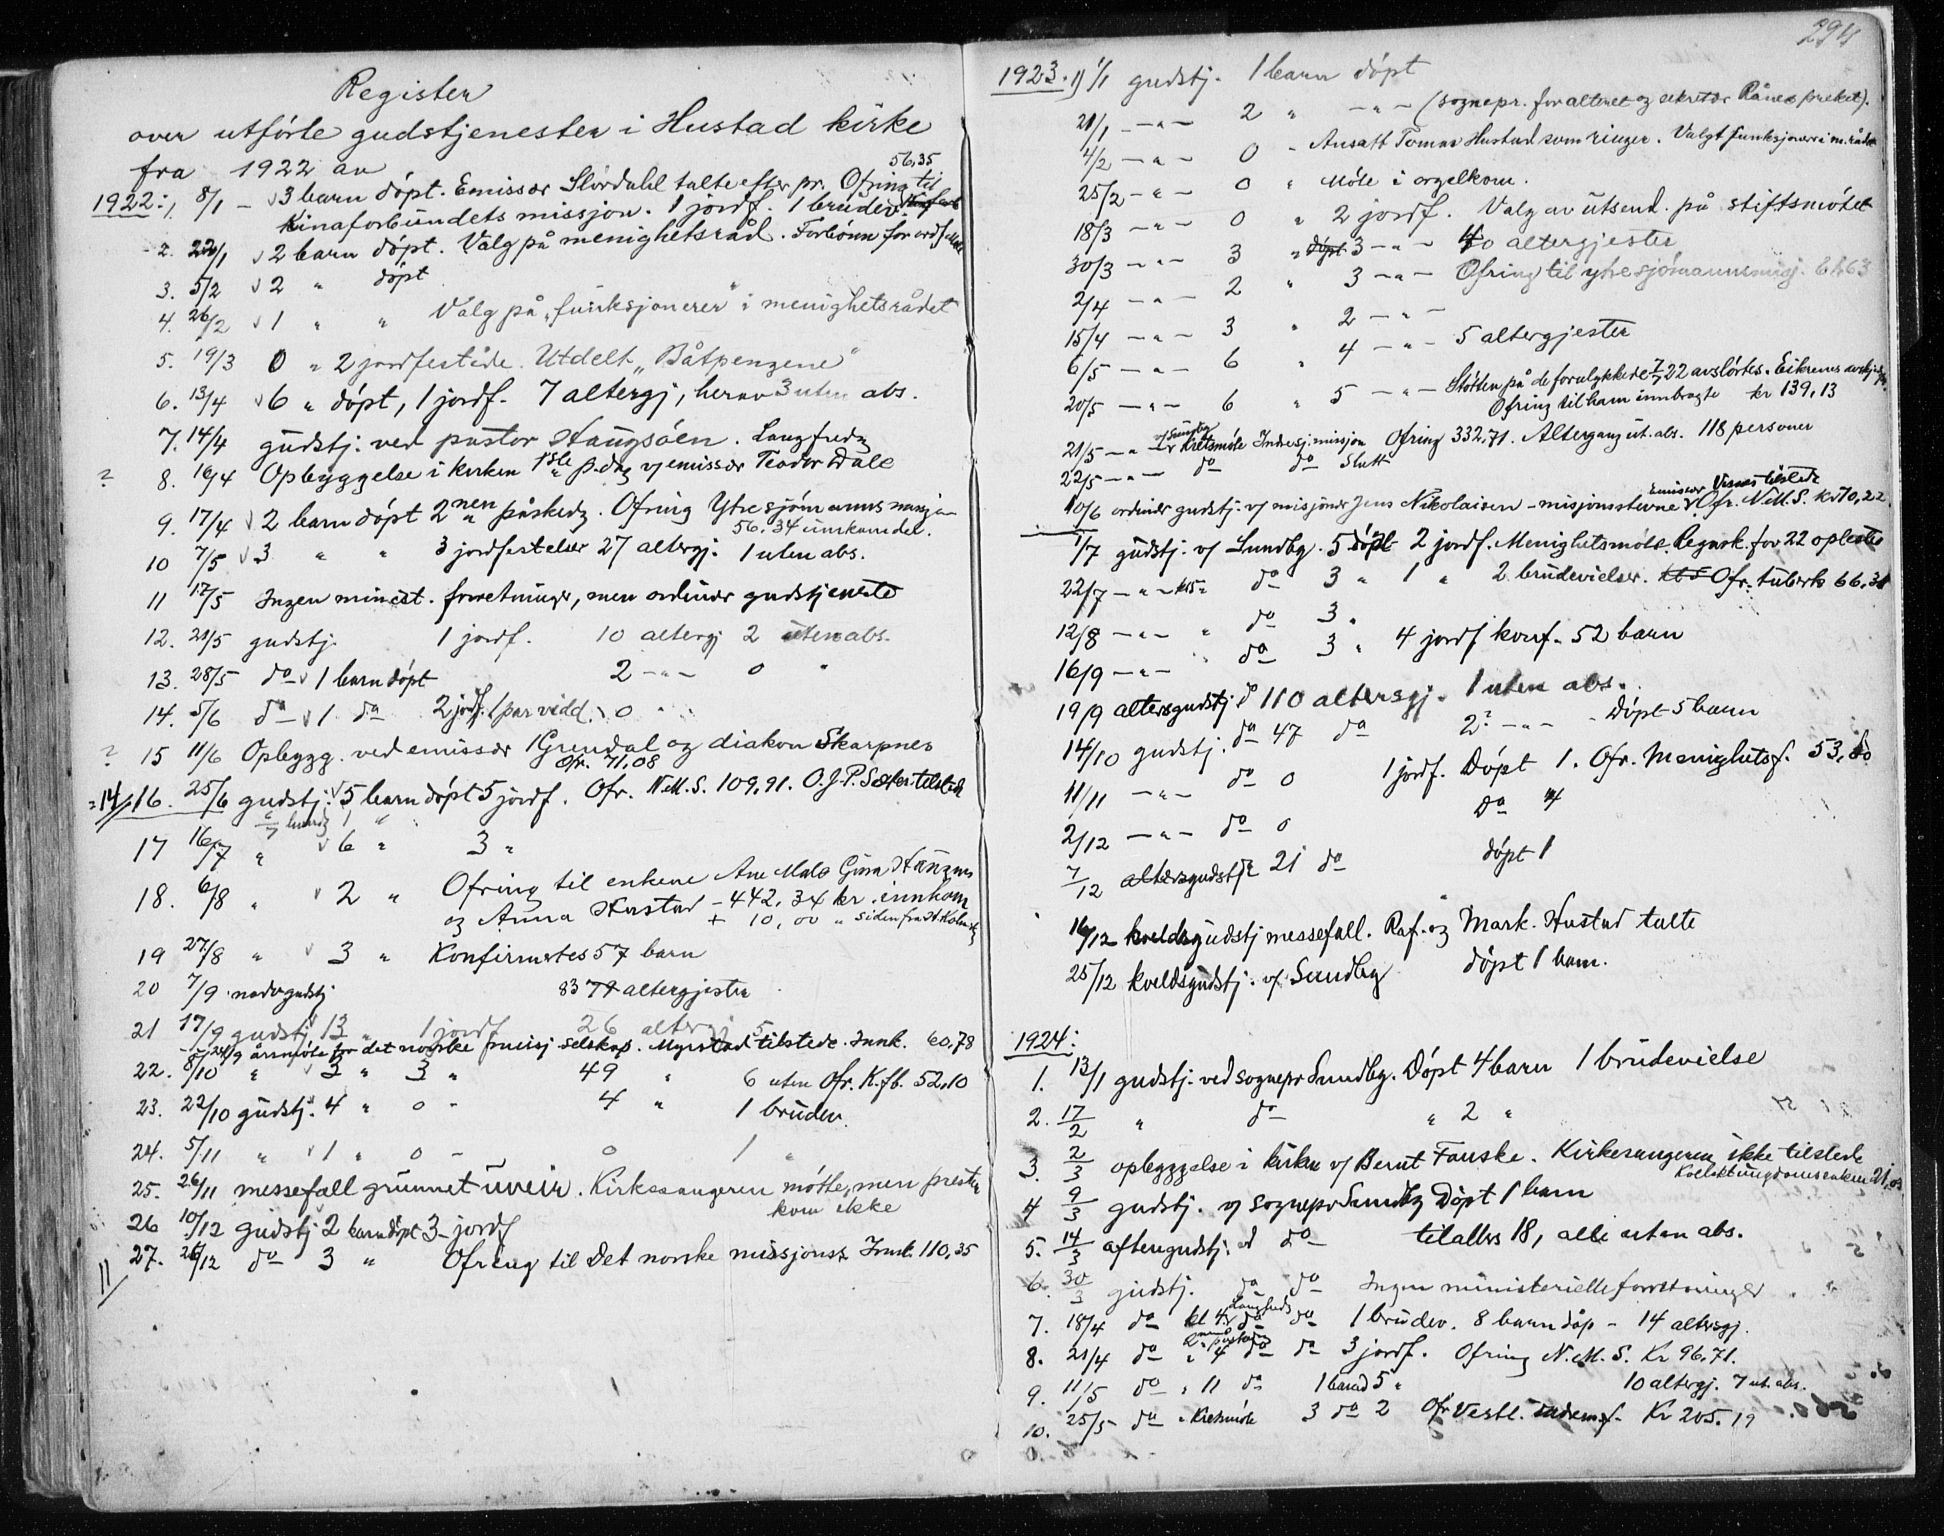 Register
over utførte gudstjenester i Hustad kirke
fra 1922 av
56,35
1922: 1. 8/1 - 3 barn døpt. Emissær Slördahl talte efter pr. Ofring til
Kinaforbundets missjon. 1 jordf. 1 brudev.
2. 22/1 2 barn døpt. Valg på menighetsråd. Forbönn for
3. 5/2 2 " døpt
4. 26/2 1 " " Valg på „funksjonerer" i menighetsrådet
5. 19/3 0 " 2 jordfestede. Utdelt „Båtpengene"
6. 13/4 6 " døpt, 1 jordf. 7 altergj, herav 3 uten abs.
7. 14/4 gudstj. ved pastor Haugsöen. Langfredg
? 8. 16/4 Opbyggelse i kirken 1ste p.dag v/ emissær Teodor Dale
9. 17/4 2 barn døpt 2nen påskedg. Ofring Ytre sjømanns
56.34 innkom del.
10 7/5 3 " " 3 jordfestelser 27 altergj. 1 uten abs.
11 17/5 Ingen minist. forretninger, men ordinær gudstjeneste
12. 21/5 gudstj. 1 jordf. 10 altergj 2 uten abs.
13. 28/5 do 1 barn døpt 2 - " - 0 "
14. 5/6 do 1 do 2 jordf. 1 par vidd. 0 " "
? 15 11/6 Opbygg. ved emissær Grendal og diakon Skarpnes
Ofr. 71,08
=14/ 16. 25/6 gudstj. 5 barn døpt 5 jordf. Ofr. N.M.S. 109,91. O.J.P. Sæter tilstede
17 16/7 " 6 " 3 "
18. 6/8 " 2 " Ofring til enkene Ane Mala Gura Haugnes
og Anna Hustad - 442,34 kr. innkom
+ 10,00 " siden fra
19 27/8 " 3 " Konfirmertes 57 barn
20 7/9 nadvgudstj 83 altergjester
21 17/9 gudstj 13 " 1 jordf 26 altergj 5
24/9 årsmöte for det norske selskap. Myrstad tilstede. Innk. 60,78
22. 8/10 " 3 " 3 " 49 " 6 uten Ofr. K.fb. 52,10
23. 22/10 gudstj. 4 " 0 - 4 " 1 brudev.
24. 5/11 " 1 " 0 - 0 1 "
25. 26/11 messefall grunnet uveir. Kirkesangeren møtte, men presten
kom ikke
26 10/12 gudstj 2 barn døpt 3 jordf
27. 26/12 do 3 " Ofring til Det norske missjonss. Innk. 110,35
11/
294
1923. 1) 1/1 gudstj. 1 barn døpt
21/1 - " - 2 " - " - (sognepr. for alteret og sekretær Rånes preket).
4/2 - " - 0 - Ansatt Tomas Hustad som ringer. Valgt funksjonær i m.rådet
25/2 - " - 0 " Møte i orgelkom.
18/3 - " - 0 " 2 jordf. Valg av utsend. på stiftsmötet
30/3 - " - 3 " døpt 3 - " - 40 altergjester
2/4 - " - 2 " 3 - " - Ofring til ytre sjömannsmisj.
15/4 - " - 3 " 2 - " -
6/5 - " - 6 " 4 - " - 5 altergjester
20/5 - " - 6 " 5 - " - Støtten på de forulykkede 7/7 22 avslørtes. Eikrems
Ofring til ham innbragte kr 139,13
21/5 - " - Kretsmøte Indresj.missjon Ofring 332,71. Altergang ut. abs. 118 personer
22/5 - " - do do Slutt
Emissær Vesnes tilstede
10/6 ordinær gudstj. v/ misjonær Jens Nikolaisen - misjonsstevne Ofr. N.M.S. kr 70,22
1/7 gudstj. v/ Sundby. 5 døpt 2 jordf. Menighetsmøte. Regnsk. for 22 oplestes
22/7 - " - do 3 " 1 " 2 brudevielser. Ofr. tuberk 66,31
12/8 - " - " do 3 "
16/9 - " - " do 3 " 4 jordf konf. 52 barn
19/9 altersgudstj do 110 altersgj. 1 uten abs.
14/10 gudstj. do 47 do 2? - " - Døpt 5 barn
11/11 - " - do 0 1 jordf. Døpt 1. Ofr. Menighetsf. 53,80
2/12 - " - do 0 do 4
7/12 altersgudstj 21 do døpt 1
16/12 kveldsgudstj messefall. Raf. og Mark. Hustad talte
25/12 kveldsgudstj. v/ Sundby døpt 1 barn.
1924:
1. 13/1 gudstj. ved sognepr Sundby. Døpt 4 barn 1 brudevielse
2. 17/2 " do " 2 "
3. 2/3 opbyggelse i kirken v/ Bernt Fauske. Kirkesangeren ikke tilstede
4 9/3 gudstj. v/ sognepr Sundby Døpt 1 barn
5. 14/3 aftengudstj. v/ do tilalters 18, alle uten abs.
6. 30/3 gudstj. do do Ingen ministerielle forretninger
7. 18/4 do kl 4 Langfreds do do 1 brudev. 8 barn døp - 14 altersgj.
8. 21/4 do " 4 do do 3 jordf. Ofring N.M.S. Kr 96,71.
9. 11/5 do " 11 do 1 barn 5 " 10 altergj. 7 ut. abs.
10. 25/5 do " Kretsmøte 3 do 2 Ofr Vestl. indremf. Kr 205.19